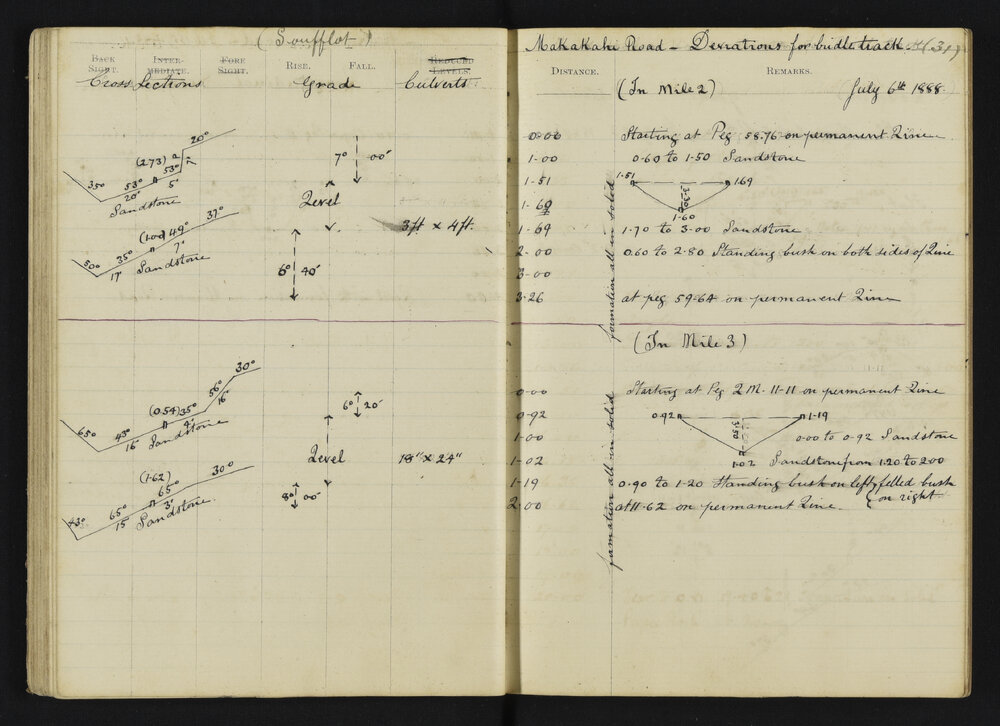 (Soufflot)
BACK SIGHT. INTERMEDIATE. FORE SIGHT. RISE. FALL. REDUCED LEVELS.
Cross Sections Grade Culverts
20°
(2.73) 2
7° 00´
35° 53° 53°
20´ 5´
Sandstone
Level
37°
(1.00) 49°
3ft × 4ft
50° 35° 7´
17´ Sandstone
6° 40´
30°
56°
16´
(0.54) 35°
6° 20´
65° 43° 4´
16´ Sandstone
Level 18" × 24"
(1.62) 30°
65°
8° 00´
43° 65° 3´
15 Sandstone
Makakahi Road – Deviations for bridle track (31)
DISTANCE. REMARKS.
(In Mile 2) July 6th 1888
0.00 Starting at Peg 58.76 on permanent Line
1.00 0.60 to 1.50 Sandstone
1.51 1.51 1.69
1.60 1.60
1.69 1.70 to 3.00 Sandstone
2.00 0.60 to 2.80 Standing bush on both sides of Line
3.00
3.26 at peg 59.64 on permanent Line
formation all in solid
(In Mile 3)
0.00 Starting at Peg 2 M. 11.11 on permanent Line
0.92 0.92 1.19
3.50
1.00 0.00 to 0.92 Sandstone
1.02 1.02 Sandstone from 1.20 to 2.00
1.19 0.90 to 1.20 Standing bush on left, felled bush
on right
2.00 at 11.62 on permanent Line.
formation all in solid